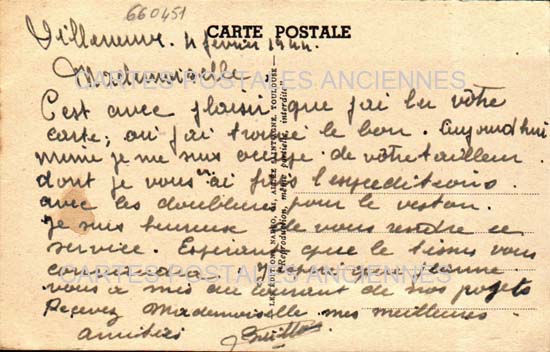 660451
CARTE POSTALE
Villeneuve. 4 février 1944.
Mademoiselle.
CARTES POSTALES ANCIENNES
C'est avec plaisir que j'ai lu votre
carte; où j'ai trouvé le bon. Aujourd'hui
même je me suis occupé de vôtre tailleur
dont je vous ai fais l'expéditions
avec les doublures pour le veston.
Je suis heureuse de vous rendre ce
service. Espérant que le tissus vous
conviendra. J'espère que Jeanne
CARTES POSTALES ANCIENNES
vous a mis au courant de nos projets
Recevez Mademoiselle mes meilleures
amitiés
LES ÉDITIONS NARBO, TOULOUSE
"Reproduction, même partielle, interdite"